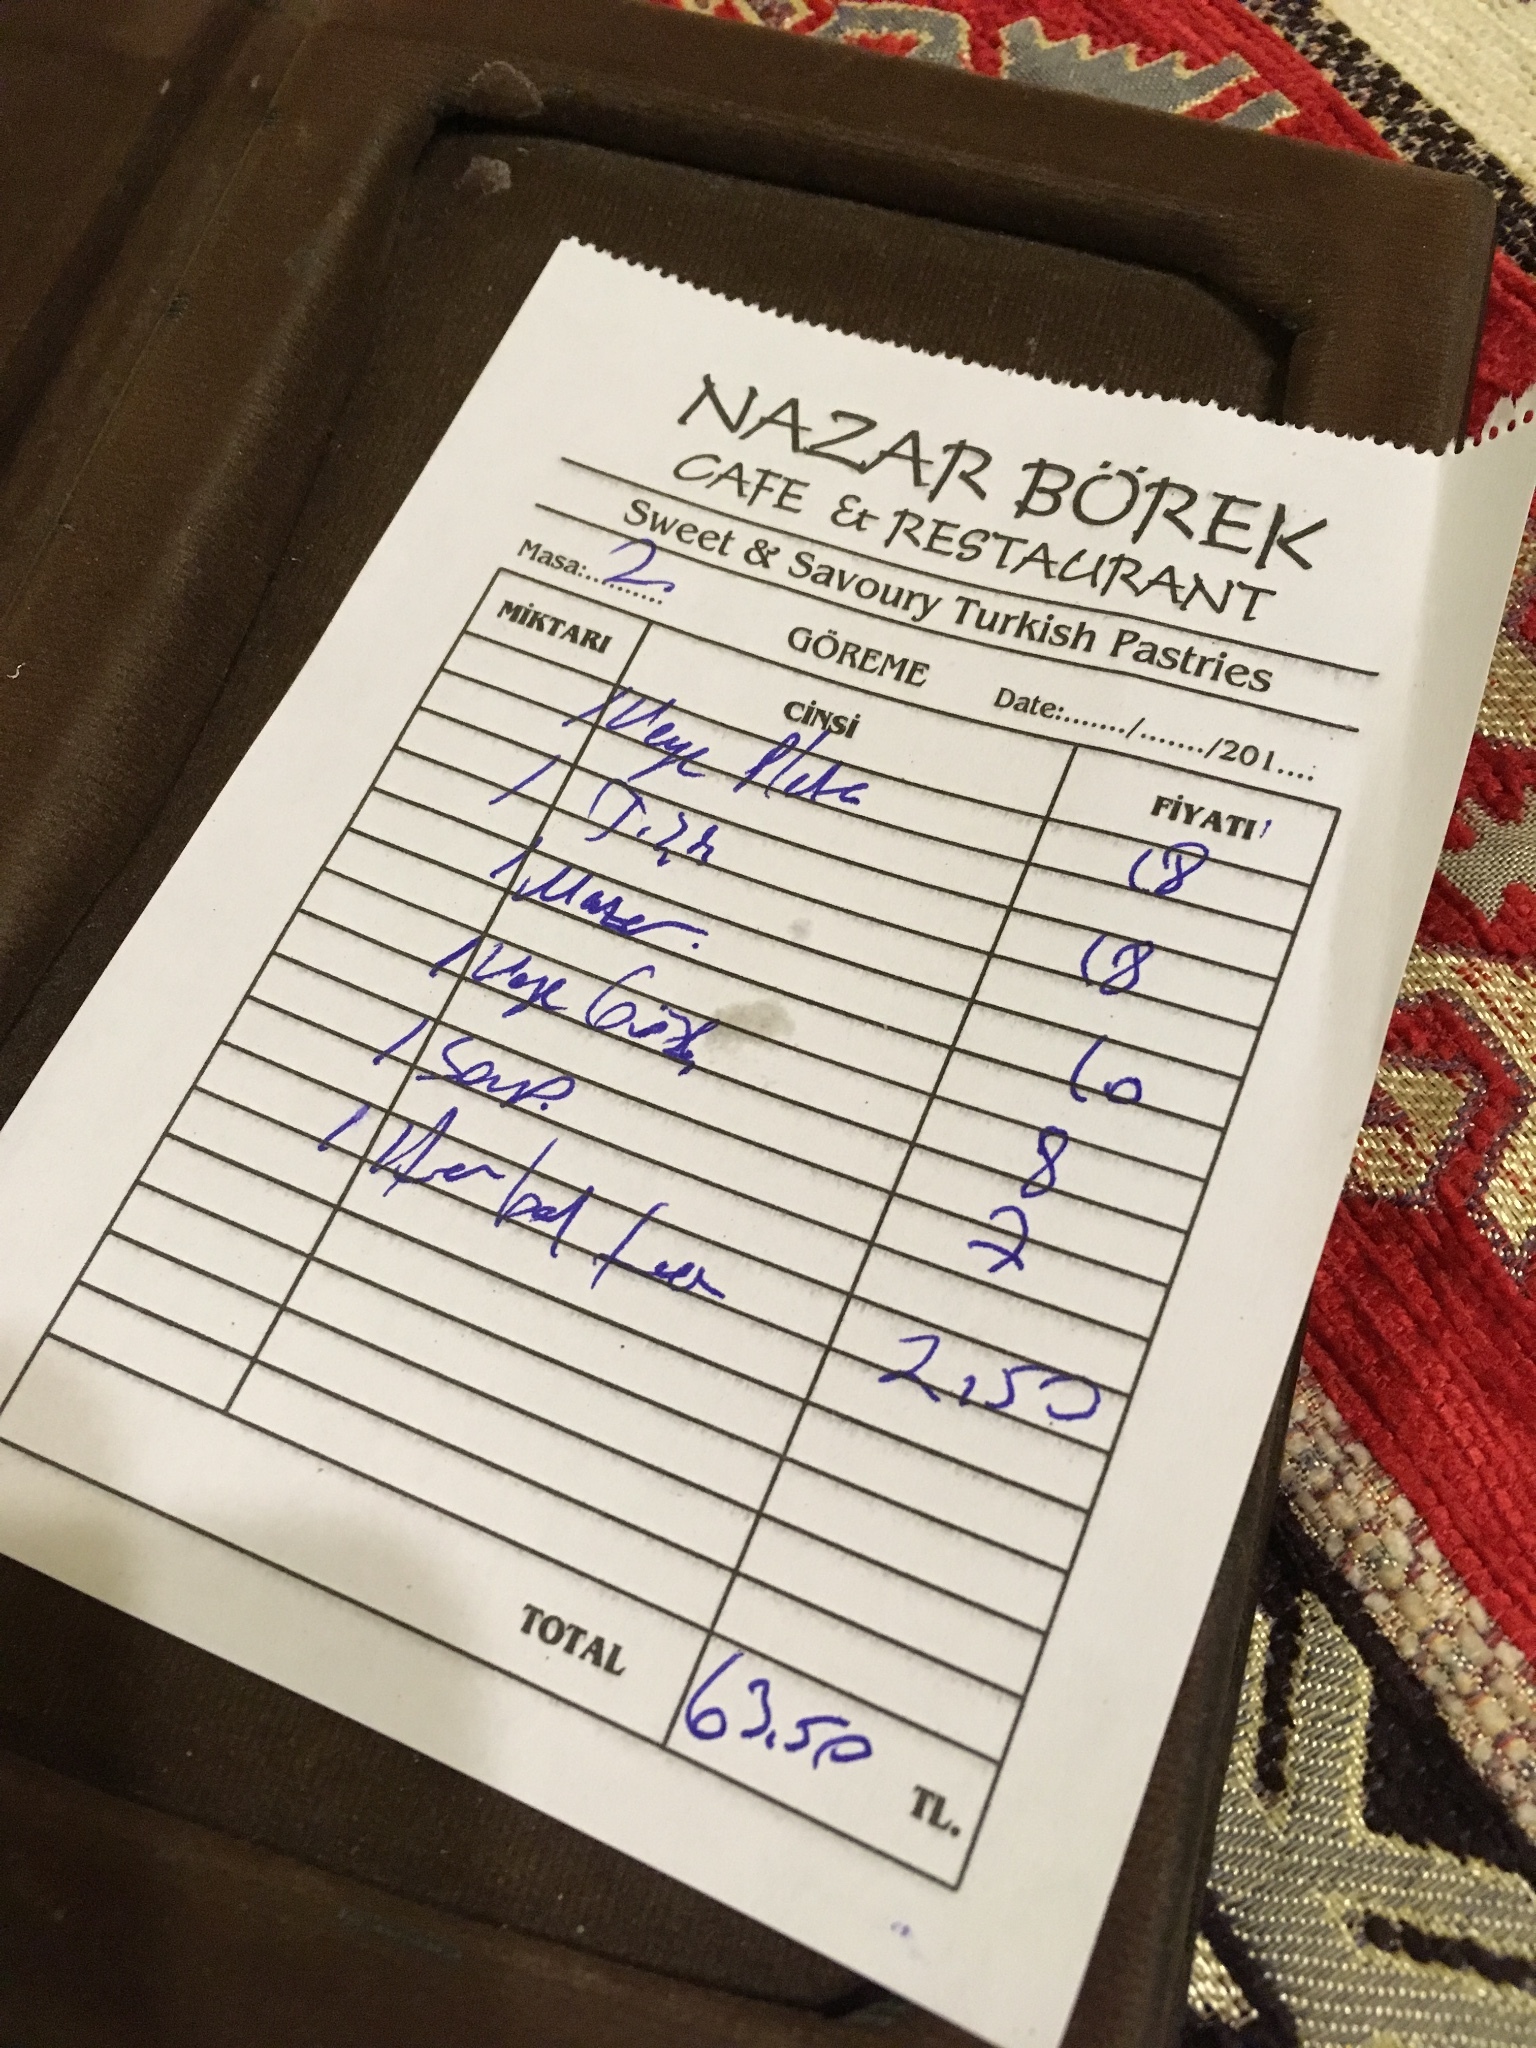 NAZAR BÖREK
CAFE & RESTAURANT
Sweet & Savoury Turkish Pastries
Masa:..........2
GÖREME
Date:......./......./201....
MİKTARI CİNSİ FİYATI
1 Meze Plate 18
1 18
1 10
1 Göz 8
1 Soup. 7
1 Herbal tea 2,50
TOTAL 63.50 TL.